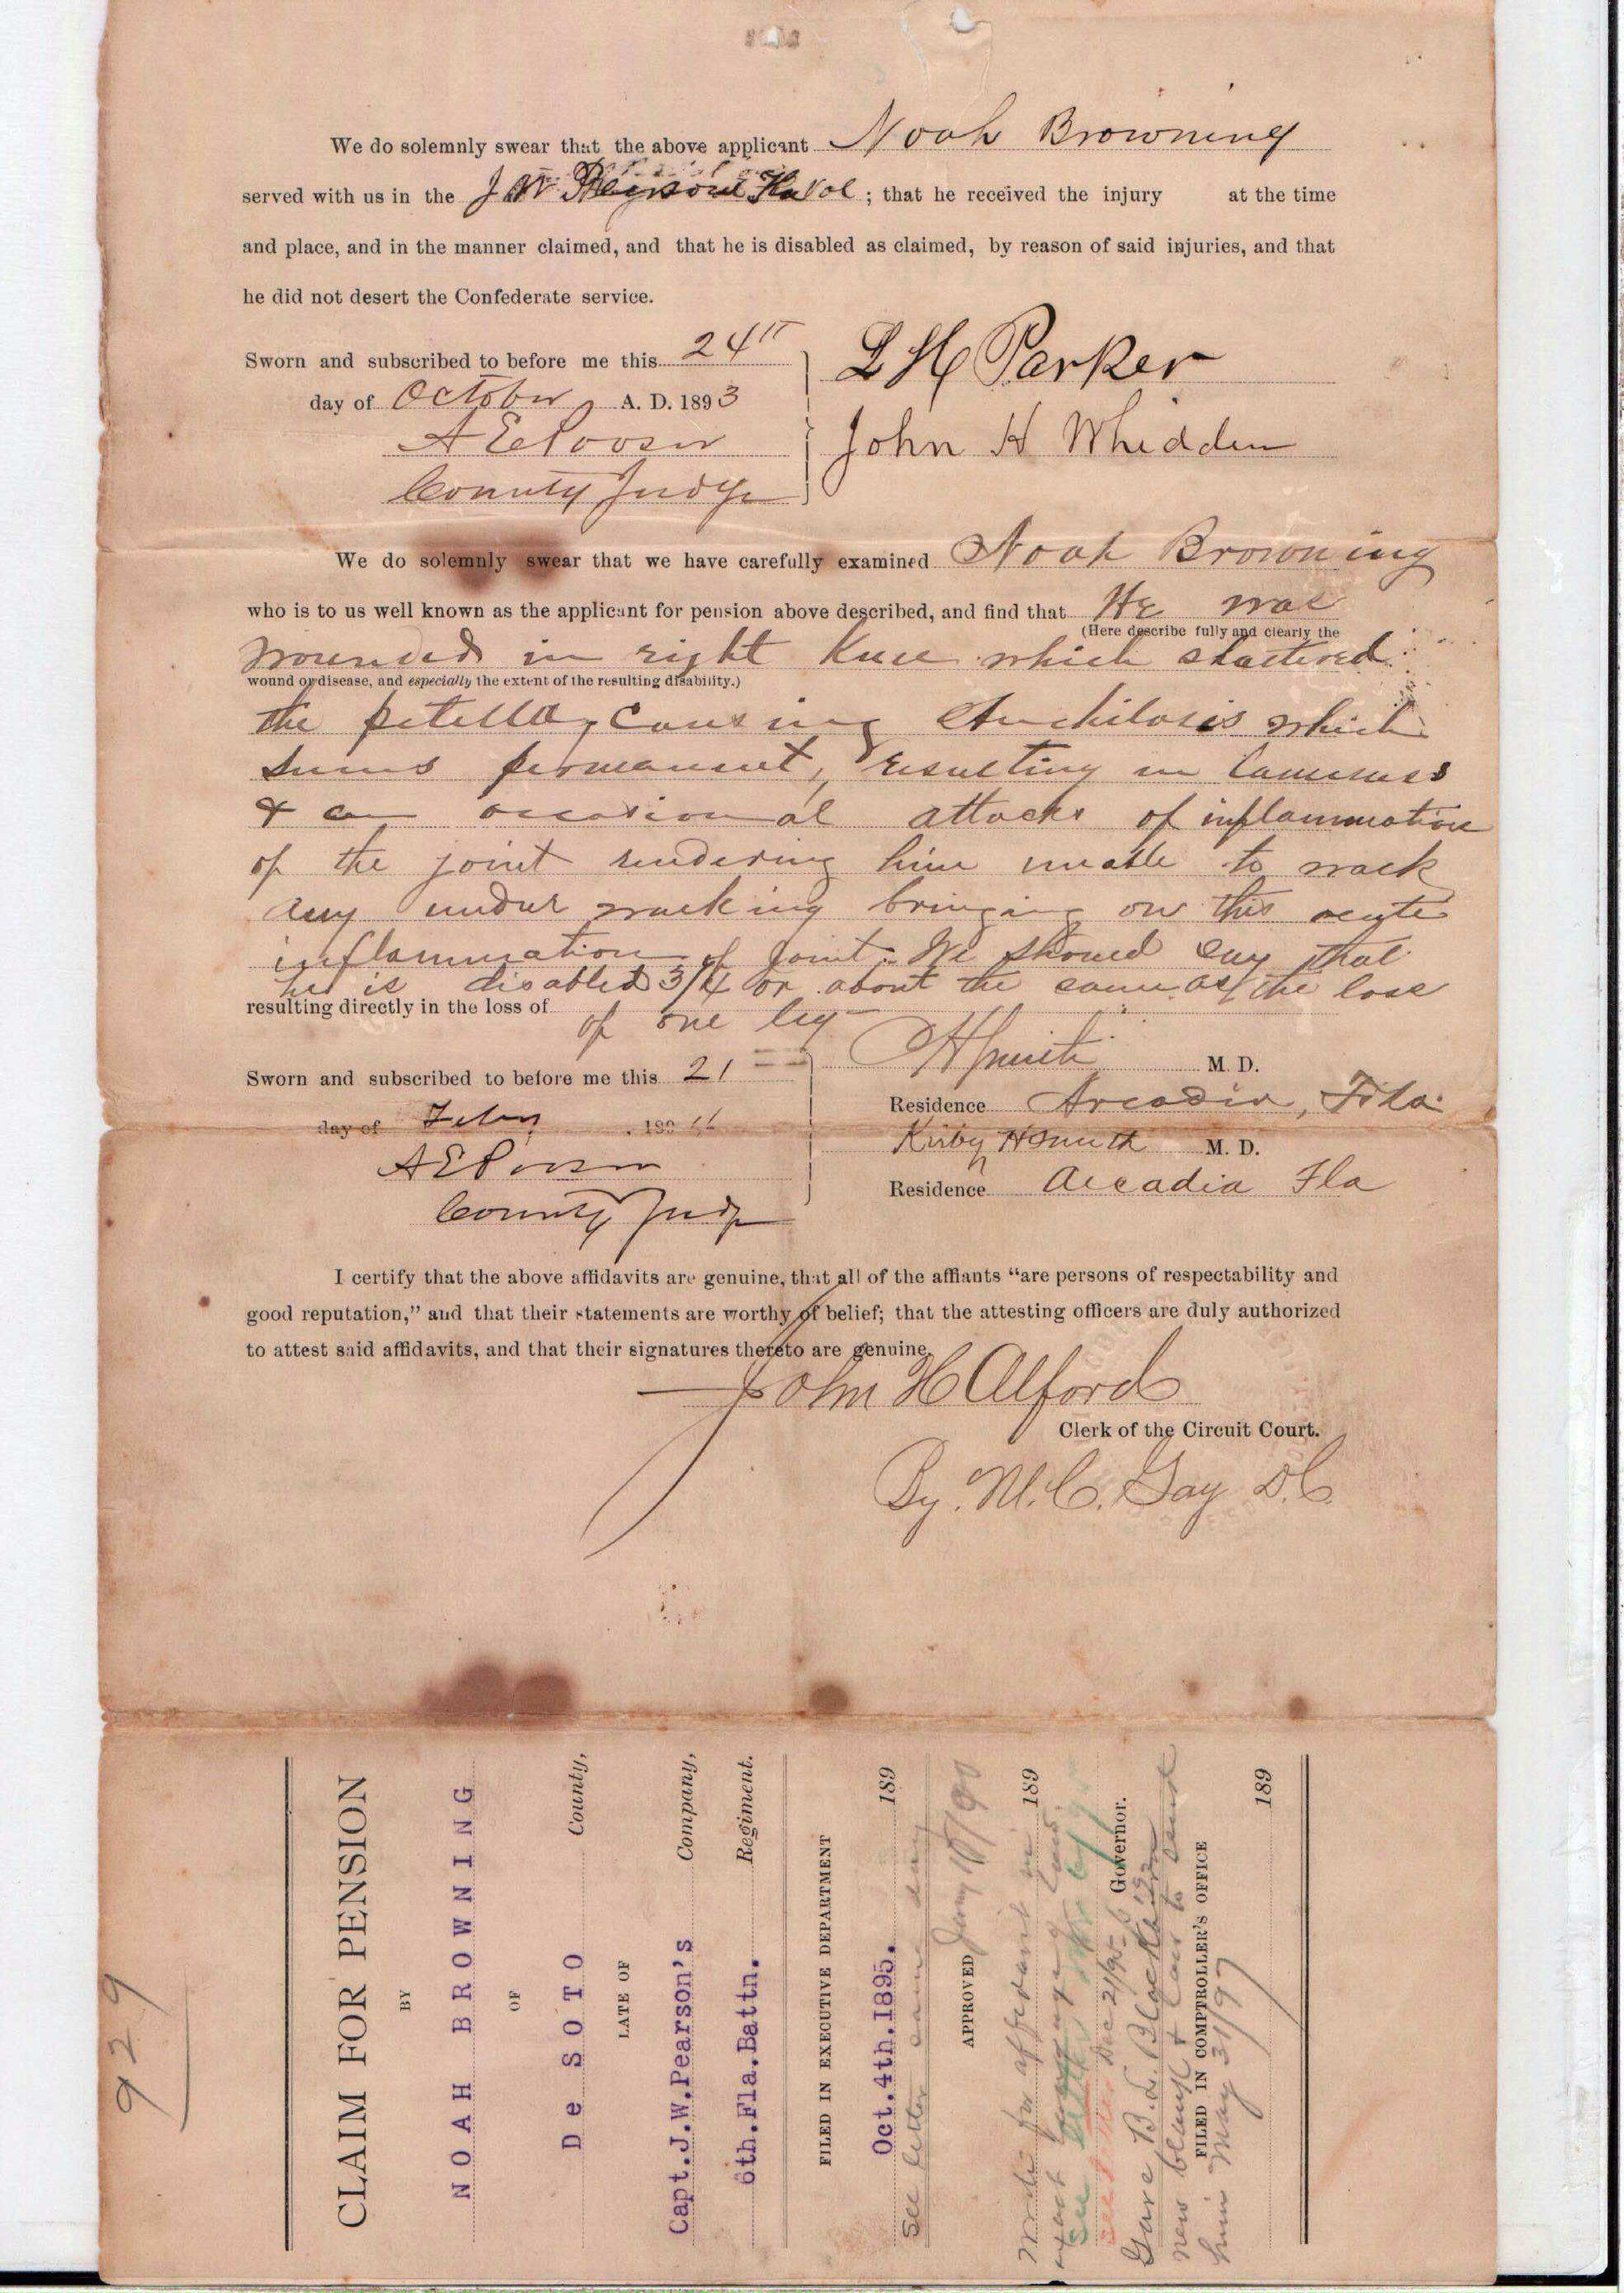 We do solemnly swear that the above applicant Noah Browning
served with us in the J W ; that he received the injury at the time
and place, and in the manner claimed, and that he is disabled as claimed, by reason of said injuries, and that
he did not desert the Confederate service.
Sworn and subscribed to before me this 24th
day of October A. D. 1893
A E Pooser
County Judge
L H Parker
John H Whidden
We do solemnly swear that we have carefully examined Noah Browning
who is to us well known as the applicant for pension above described, and find that He was
(Here describe fully and clearly the
wounded in right Knee which shattered
wound or disease, and especially the extent of the resulting disability.)
the petella, causing Anchilosis which
seems permanent, resulting in lameness
& an occasional attacks of inflammation
of the joint rendering him unable to work
any undue working bringing on this acute
inflammation of joint. We should say that
he is disabled 3/4 or about the same as the loss
resulting directly in the loss of
of one leg
Sworn and subscribed to before me this 21
day of Feby 189
A E Pooser
County Judge
Smith M. D.
Residence Arcadia, Fla.
Kirby H Smith M. D.
Residence Arcadia Fla
I certify that the above affidavits are genuine, that all of the affiants “are persons of respectability and
good reputation,” and that their statements are worthy of belief; that the attesting officers are duly authorized
to attest said affidavits, and that their signatures thereto are genuine.
John H Alford
Clerk of the Circuit Court.
By. M. C. Gay D. C.
929
CLAIM FOR PENSION
BY
NOAH BROWNING
OF
De SOTO County,
LATE OF
Capt.J.W.Pearson's Company,
6th.Fla.Battn. Regiment.
FILED IN EXECUTIVE DEPARTMENT
Oct.4th.1895. 189
See letter same day
APPROVED
189
Write for affidavit
See letter
Dec 21/95
Governor.
Gave B.L. Blackburn
new blank &
FILED IN COMPTROLLER'S OFFICE
him May 31/97 189